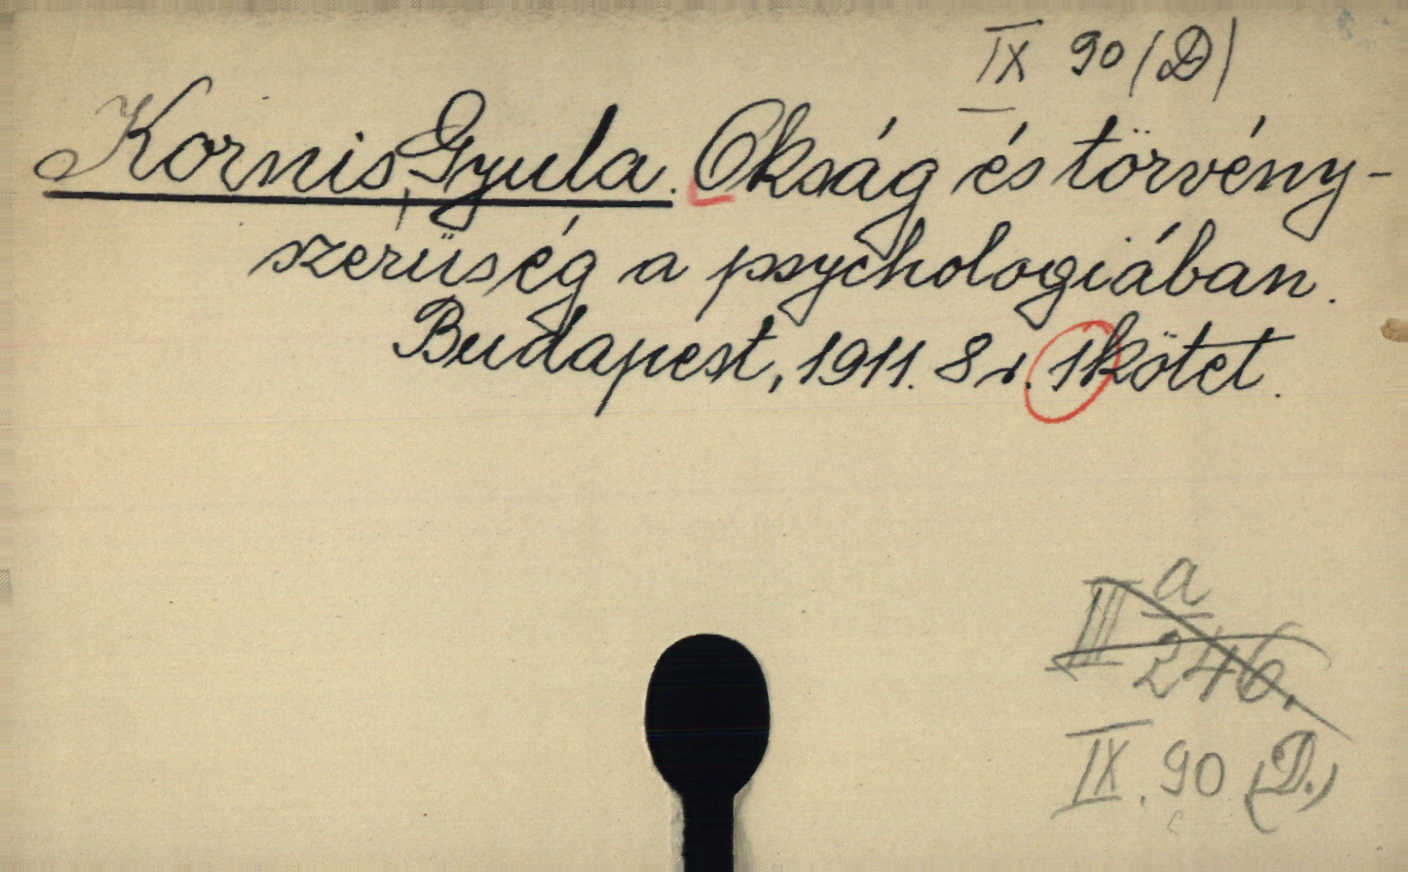 IX 90 (D)
Kornis, Gyula. Okság és törvény-
szerüség a psychologiában.
Budapest, 1911. 8r. 1 kötet.
III a/246.
IX. 90 (D.)